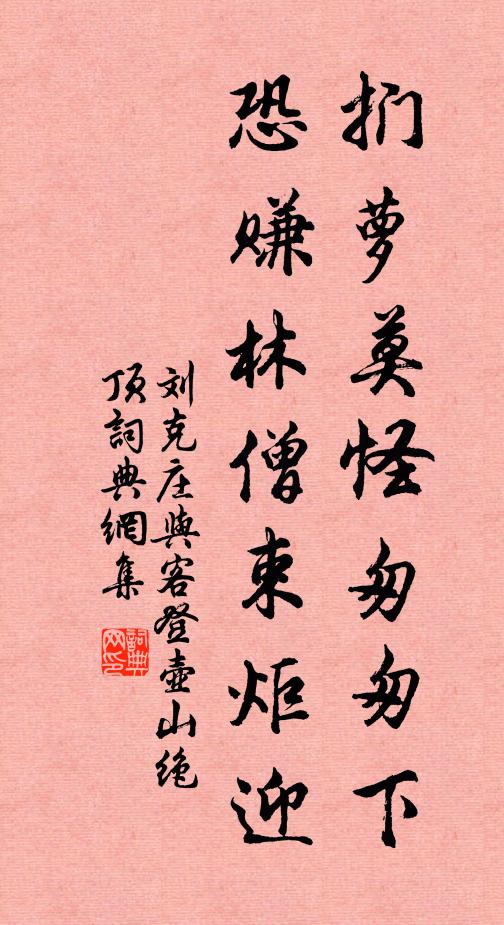 扪萝莫怪匆匆下
恐赚林僧束炬迎
刘克庄與客登壺山绝
顶詞典網集
詞典
网印